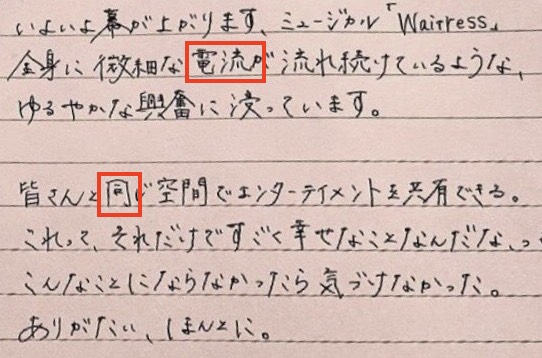 いよいよ幕が上がります、ミュージカル「Waitress」
全身に微細な電流が流れ続けているような、
ゆるやかな興奮に浸っています。
皆さんと同じ空間でエンターテイメントを共有できる。
これって、それだけですごく幸せなことなんだな、っ
こんなことにならなかったら気づけなかった。
ありがたい、ほんとに。